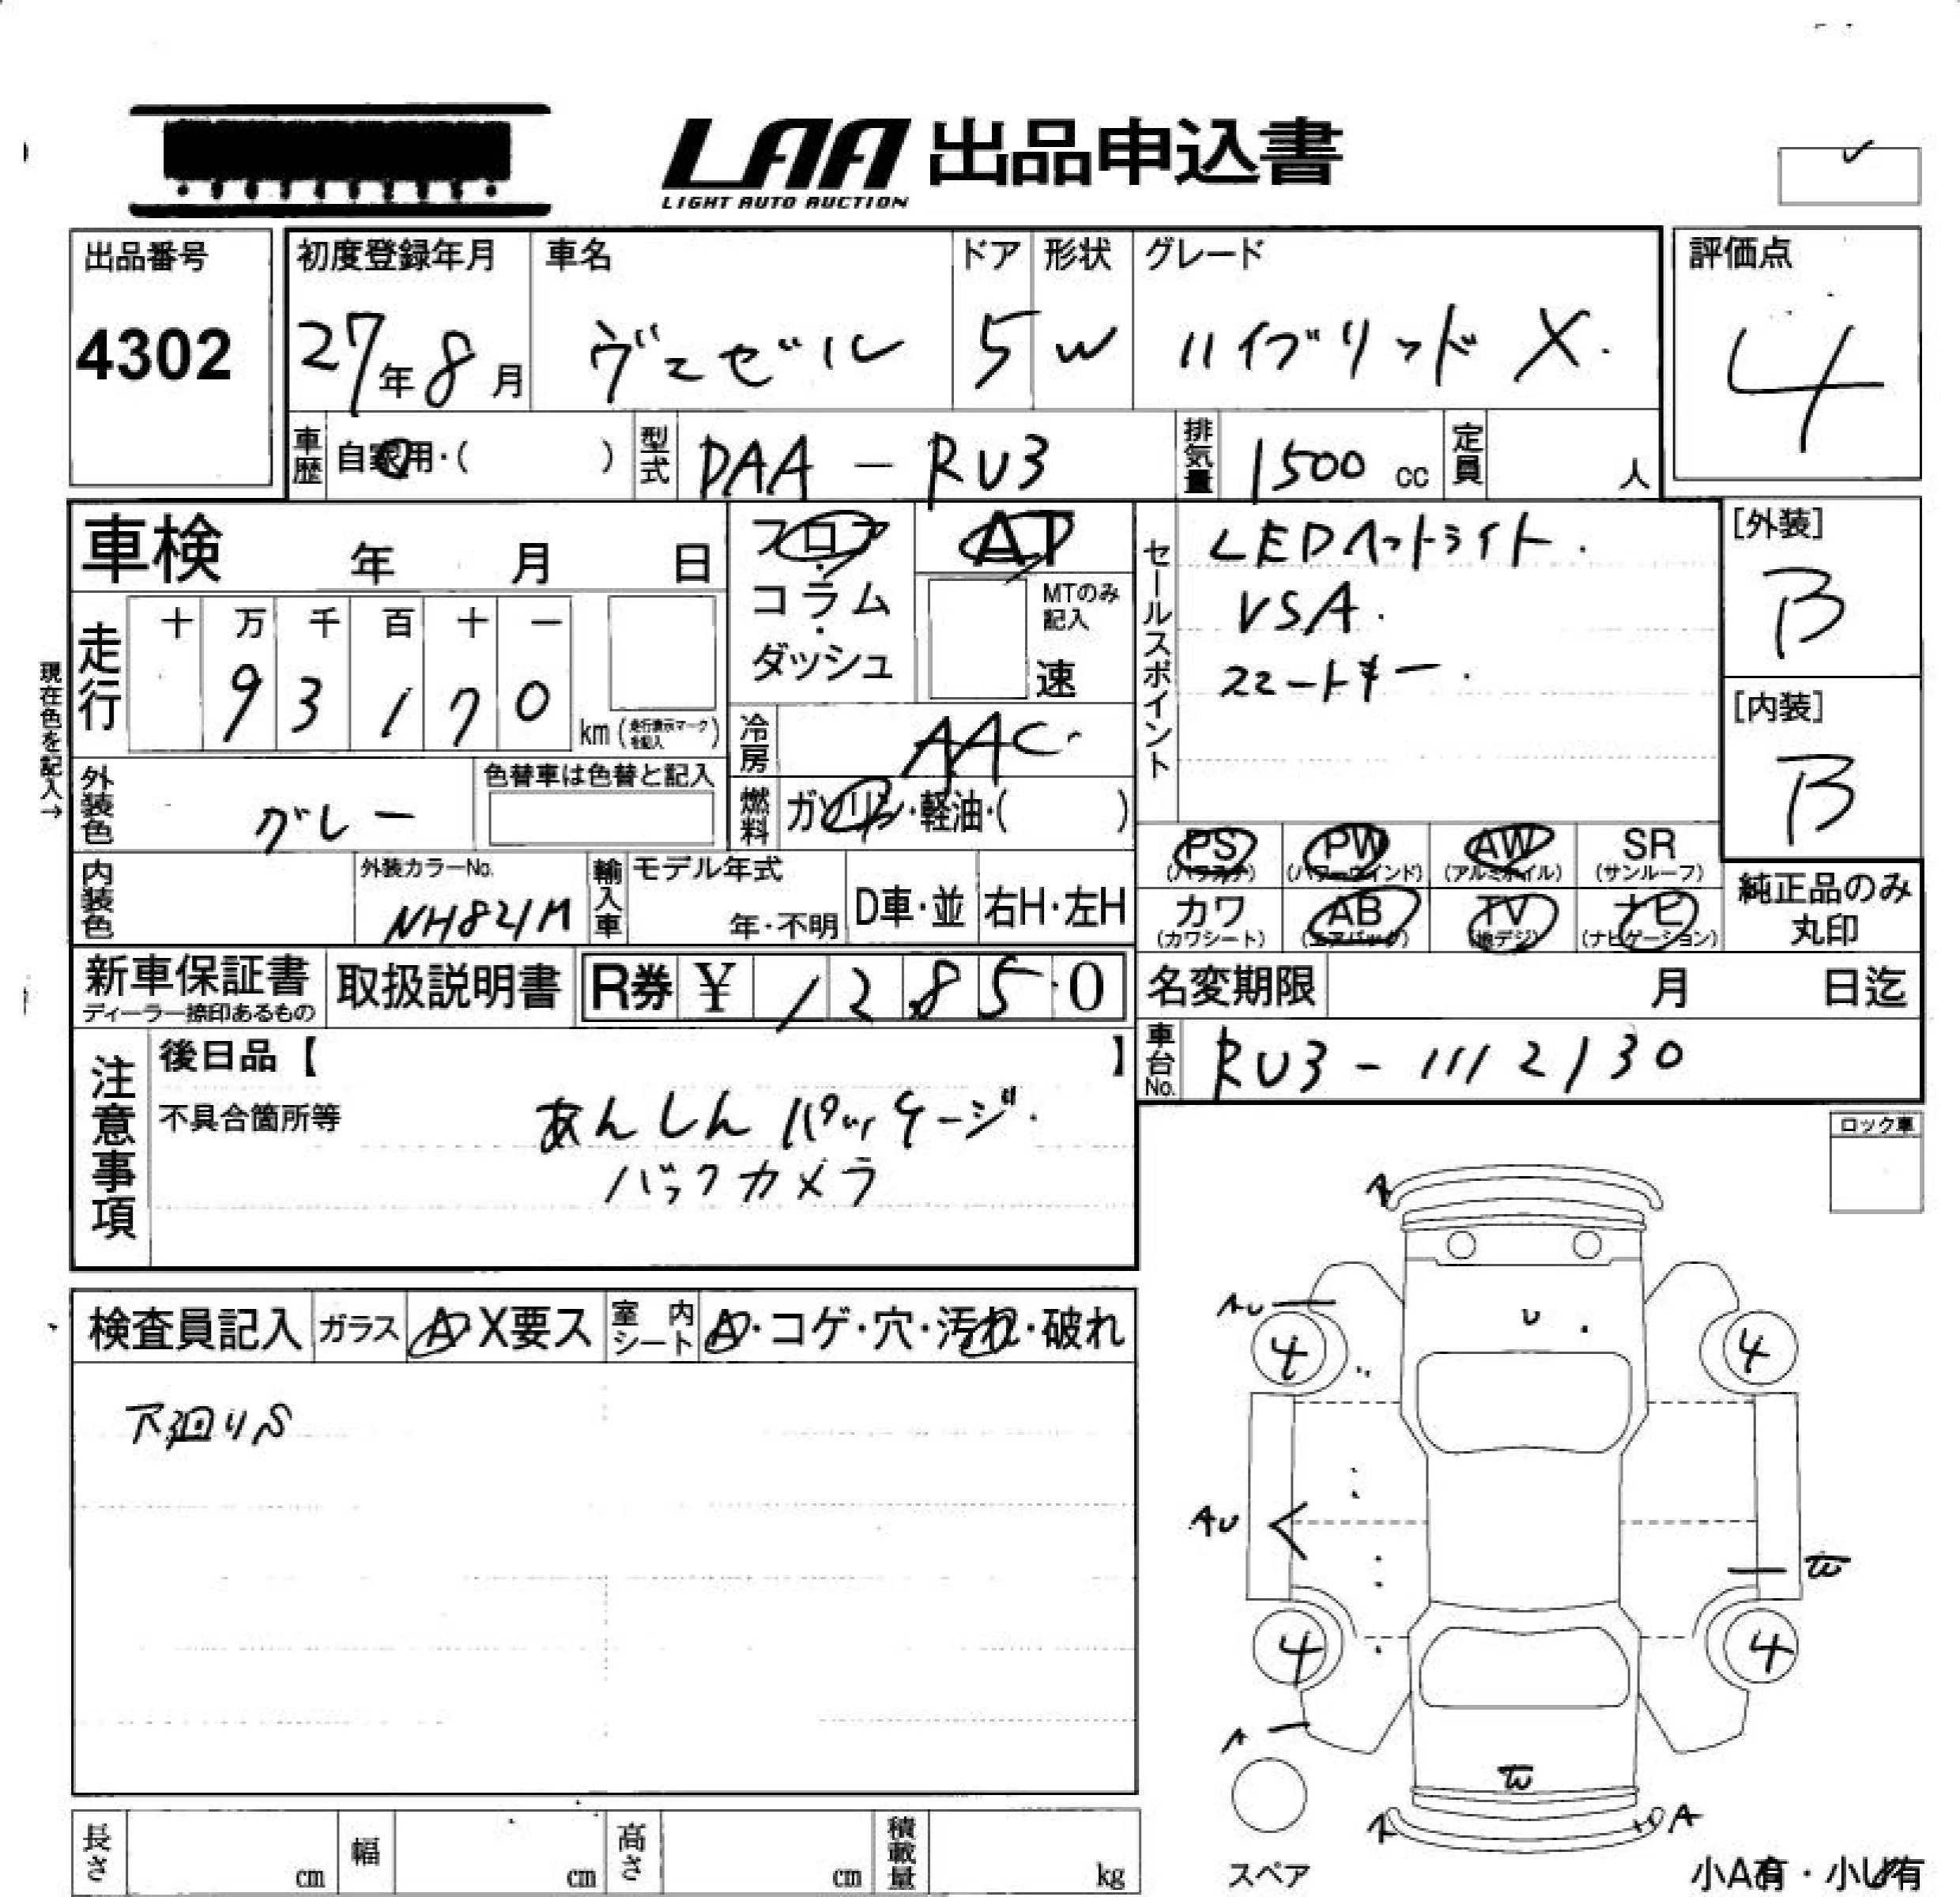 LAA 出品申込書
LIGHT AUTO AUCTION
出品番号
4302
初度登録年月
27年8月
車名
ヴェゼル
ドア
5
形状
W
グレード
ハイブリッド X.
評価点
4
車歴
自家用・( )
型式
DAA - RU3
排気量
1500 cc
定員
人
車検 年 月 日
フロア・コラム・ダッシュ
AT
MTのみ記入
速
セールスポイント
LEDヘットライト.
VSA.
スマートキー.
[外装]
B
[内装]
B
現在色を記入→
走行
十 万 千 百 十 一
9 3 1 7 0
km (走行表示マークを記入)
冷房
AAC
外装色
グレー
色替車は色替と記入
燃料
ガソリン・軽油・( )
PS (パワステ)
PW (パワーウインド)
AW (アルミホイル)
SR (サンルーフ)
カワ (カワシート)
AB (エアバック)
TV (地デジ)
ナビ (ナビゲーション)
純正品のみ丸印
内装色
外装カラーNo.
NH821M
輸入車
モデル年式
年・不明
D車・並
右H・左H
新車保証書
ディーラー捺印あるもの
取扱説明書
R券 ¥ 1 2 8 5 0
名変期限 月 日迄
車台No.
RU3 - 1112130
注意事項
後日品【 】
不具合箇所等
あんしんパッケージ.
バックカメラ
ロック車
検査員記入
ガラス
A・X要ス
室内シート
A・コゲ・穴・汚れ・破れ
下廻りS
A
AU
U
4
4
AU
W
4
4
A
W
A
A
スペア
小A有・小U有
長さ cm
幅 cm
高さ cm
積載量 kg